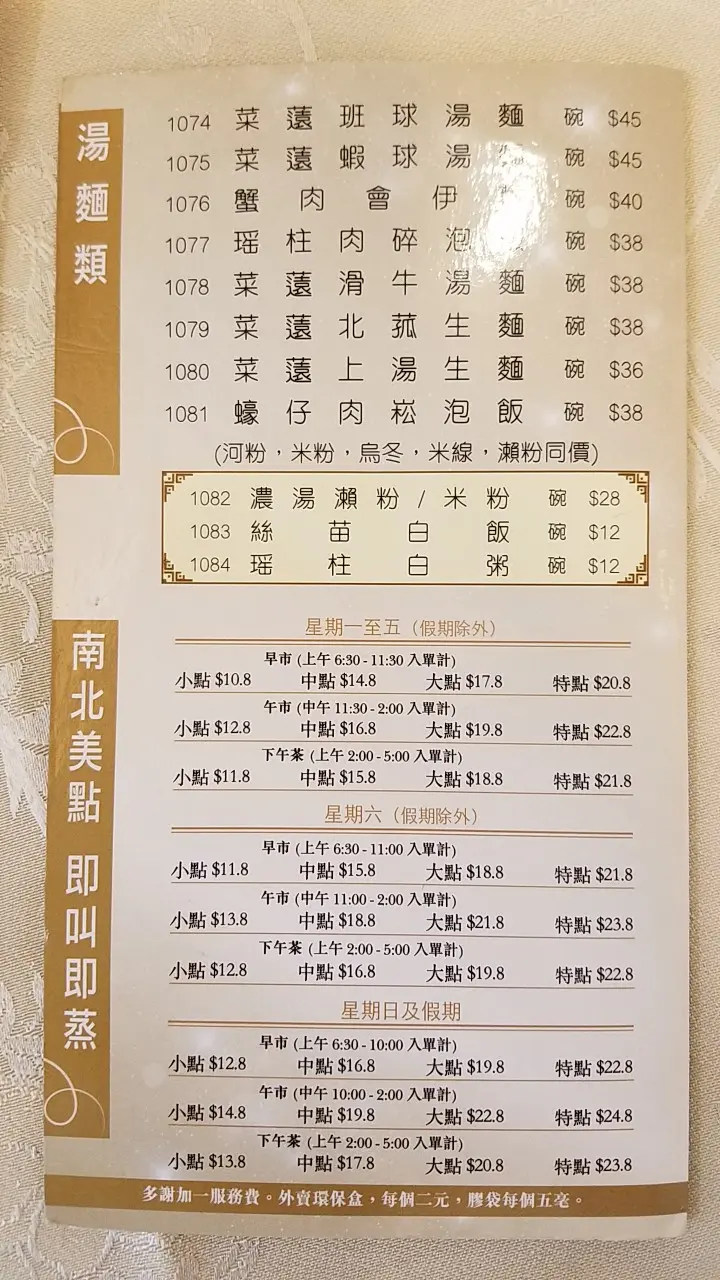 湯麵類
1074 菜薳班球湯麵 碗 $45
1075 菜薳蝦球湯 碗 $45
1076 蟹肉會伊 碗 $40
1077 瑶柱肉碎泡 碗 $38
1078 菜薳滑牛湯麵 碗 $38
1079 菜薳北菰生麵 碗 $38
1080 菜薳上湯生麵 碗 $36
1081 蠔仔肉崧泡飯 碗 $38
(河粉，米粉，烏冬，米線，瀨粉同價)
1082 濃湯瀨粉/米粉 碗 $28
1083 絲苗白飯 碗 $12
1084 瑶柱白粥 碗 $12
南北美點 即叫即蒸
星期一至五（假期除外）
早市 (上午 6:30 - 11:30 入單計)
小點 $10.8 中點 $14.8 大點 $17.8 特點 $20.8
午市 (中午 11:30 - 2:00 入單計)
小點 $12.8 中點 $16.8 大點 $19.8 特點 $22.8
下午茶 (上午 2:00 - 5:00 入單計)
小點 $11.8 中點 $15.8 大點 $18.8 特點 $21.8
星期六（假期除外）
早市 (上午 6:30 - 11:00 入單計)
小點 $11.8 中點 $15.8 大點 $18.8 特點 $21.8
午市 (中午 11:00 - 2:00 入單計)
小點 $13.8 中點 $18.8 大點 $21.8 特點 $23.8
下午茶 (上午 2:00 - 5:00 入單計)
小點 $12.8 中點 $16.8 大點 $19.8 特點 $22.8
星期日及假期
早市 (上午 6:30 - 10:00 入單計)
小點 $12.8 中點 $16.8 大點 $19.8 特點 $22.8
午市 (中午 10:00 - 2:00 入單計)
小點 $14.8 中點 $19.8 大點 $22.8 特點 $24.8
下午茶 (上午 2:00 - 5:00 入單計)
小點 $13.8 中點 $17.8 大點 $20.8 特點 $23.8
多謝加一服務費。外賣環保盒，每個二元，膠袋每個五毫。